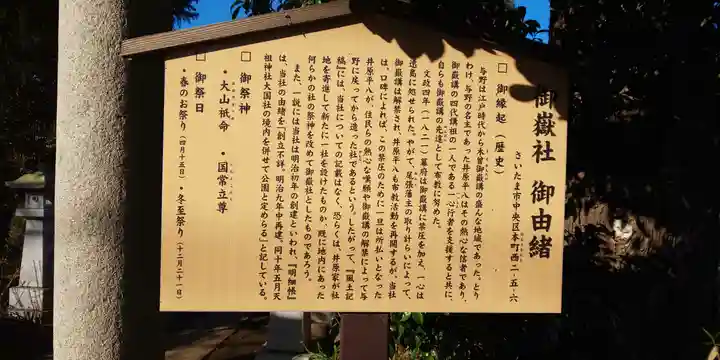 御嶽社 御由緒
さいたま市中央区本町西二-五-六
□ 御縁起(歴史)
与野は江戸時代から木曽御嶽講の盛んな地域であった。とり
わけ、与野の名主であった井原平八はその熱心な信者であり、
御嶽講の四代講祖の一人である一心行者を支援すると共に、
自らも御嶽講の先達として布教に努めた。
文政四年(一八二一)幕府は御嶽講に禁圧を加え、一心は
遠島に処せられた。やがて、尾張藩主の取り計らいによって、
御嶽講は解禁され、井原平八も布教活動を再開するが、当社
は、口碑によれば、この禁圧のために一旦は所払いとなった
井原平八が、住民らの熱心な嘆願や御嶽講の解禁によって与
野に戻ってから造った社であるという。したがって、『風土記
稿』には、当社についての記載はなく、恐らくは、井原家が社
地を寄進して新たに一社を設けたものか、既に地内にあった
何らかの社の祭神を改めて御嶽社としたものであろう。
また、一説には当社は明治四年の創建といわれ、『明細帳』
は、当社の由緒を「創立不詳、明治九年中再建、同十年五月天
祖神社大国社の境内を併せて公園と定めらる」と記している。
□ 御祭神
・大山祇命 ・国常立尊
□ 御祭日
・春のお祭り(四月十五日) ・冬至祭り(十二月二十一日)